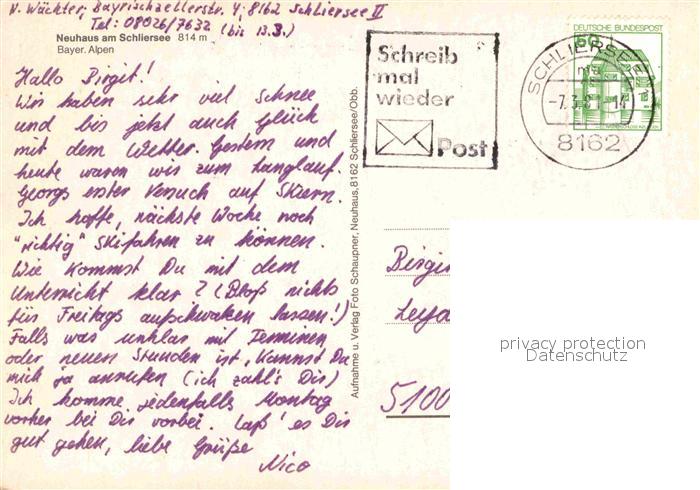 N. Wächter, Bayrischzellerstr. 4, 8162 Schliersee II
Tel: 08026/7632 (bis 13.3.)
Neuhaus am Schliersee 814 m
Bayer. Alpen
Hallo Birgit!
Wir haben sehr viel Schnee
und bis jetzt auch Glück
mit dem Wetter. Gestern und
heute waren wir zum Langlauf.
Georgs erster Versuch auf Skiern.
Ich hoffe, nächste Woche noch
"richtig" Skifahren zu können.
Wie kommst Du mit dem
Unterricht klar? (Bloß nichts
für Freitags aufschwatzen lassen!)
Falls was unklar mit Terminen
oder neuen Stunden ist, kannst Du
mich ja anrufen (ich zahl's Dir)
Ich komme jedenfalls Montag
vorher bei Dir vorbei. Laß' es Dir
gut gehen, liebe Grüße
Nico
Aufnahme u. Verlag Foto Schaupner, Neuhaus, 8162 Schliersee/Obb.
Schreib
mal
wieder
Post
SCHLIERSEE
-7.3.8
8162
DEUTSCHE BUNDESPOST
50
Birgi
5100
privacy protection
Datenschutz